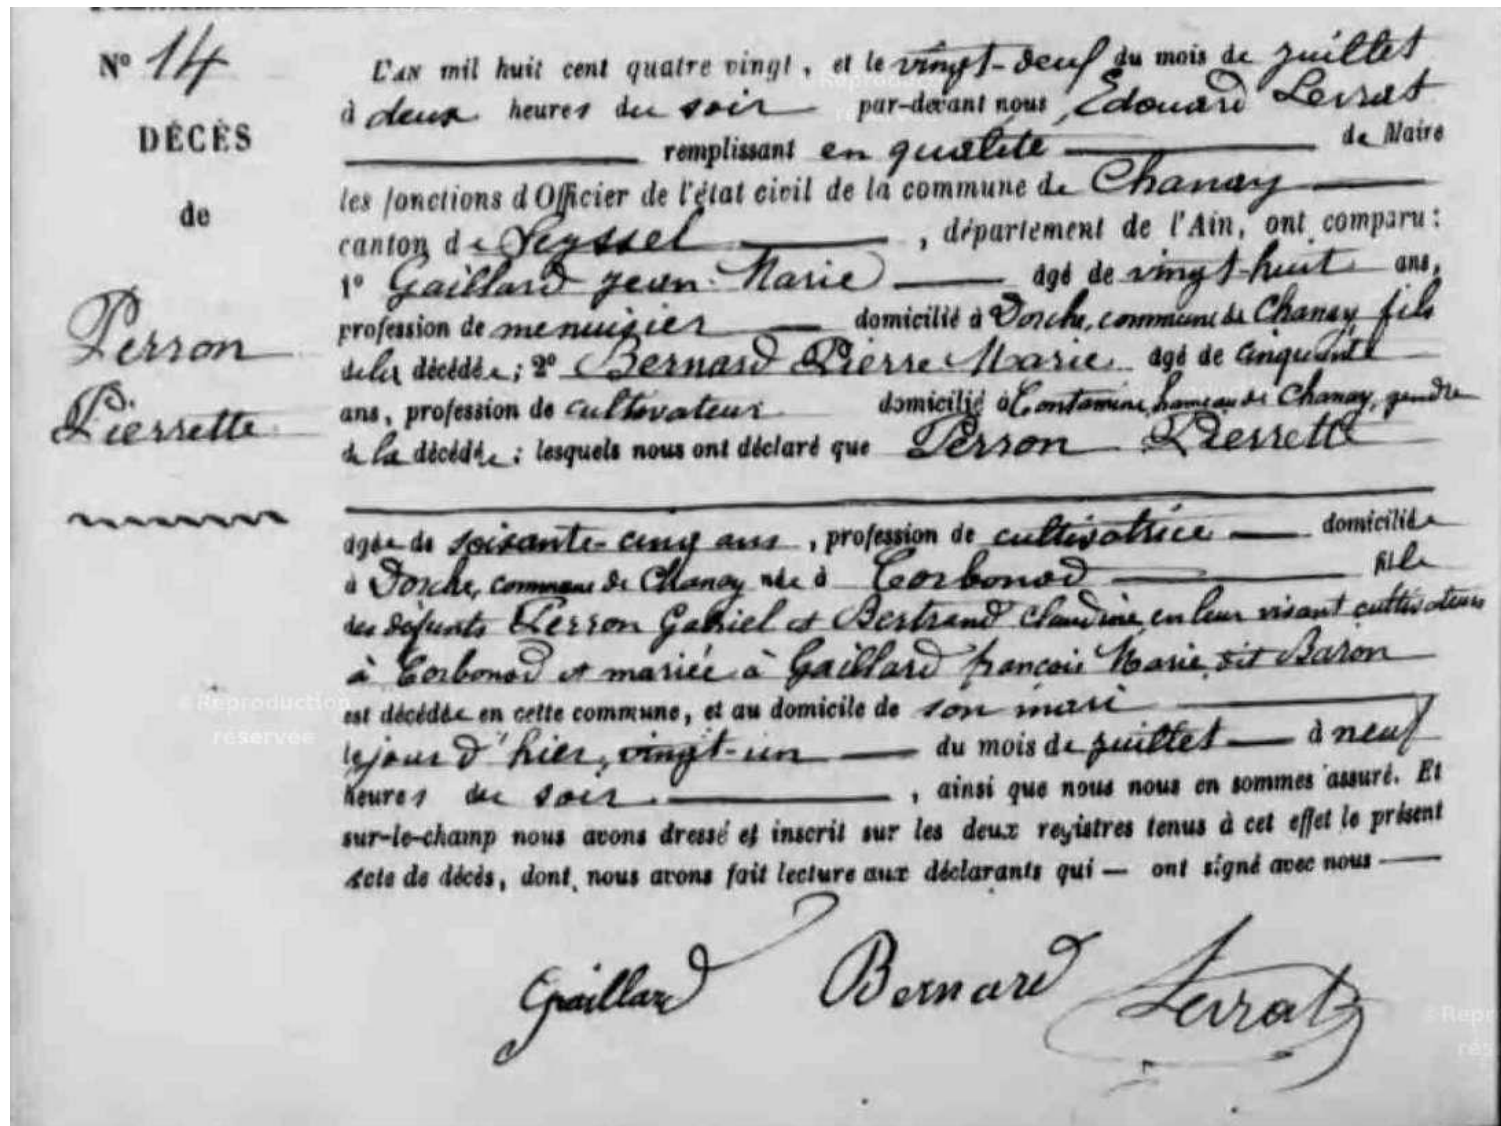 Nº 14
DÉCÈS
de
Perron
Pierrette
L'an mil huit cent quatre vingt, et le vingt-deux du mois de juillet
à deux heures du soir par-devant nous Edouard Levrat
remplissant en qualité de Maire
les fonctions d'Officier de l'état civil de la commune de Chanay
canton de Seyssel, département de l'Ain, ont comparu :
1º Gaillard Jean-Marie âgé de vingt-huit ans,
profession de menuisier domicilié à Dorche, commune de Chanay fils
de la décédée ; 2º Bernard Pierre Marie âgé de cinquante
ans, profession de cultivateur domicilié à Contamine, hameau de Chanay, gendre
de la décédée ; lesquels nous ont déclaré que Perron Pierrette
âgée de soixante-cinq ans, profession de cultivatrice domiciliée
à Dorche, commune de Chanay née à Corbonod fille
des défunts Perron Gabriel et Bertrand Claudine, en leur vivant cultivateurs
à Corbonod et mariée à Gaillard françois Marie, dit Baron
est décédée en cette commune, et au domicile de son mari
le jour d'hier, vingt-un du mois de juillet à neuf
heures du soir, ainsi que nous nous en sommes assuré. Et
sur-le-champ nous avons dressé et inscrit sur les deux registres tenus à cet effet le présent
acte de décès, dont nous avons fait lecture aux déclarants qui — ont signé avec nous
Gaillard Bernard Levrat
© Reproduction
réservée